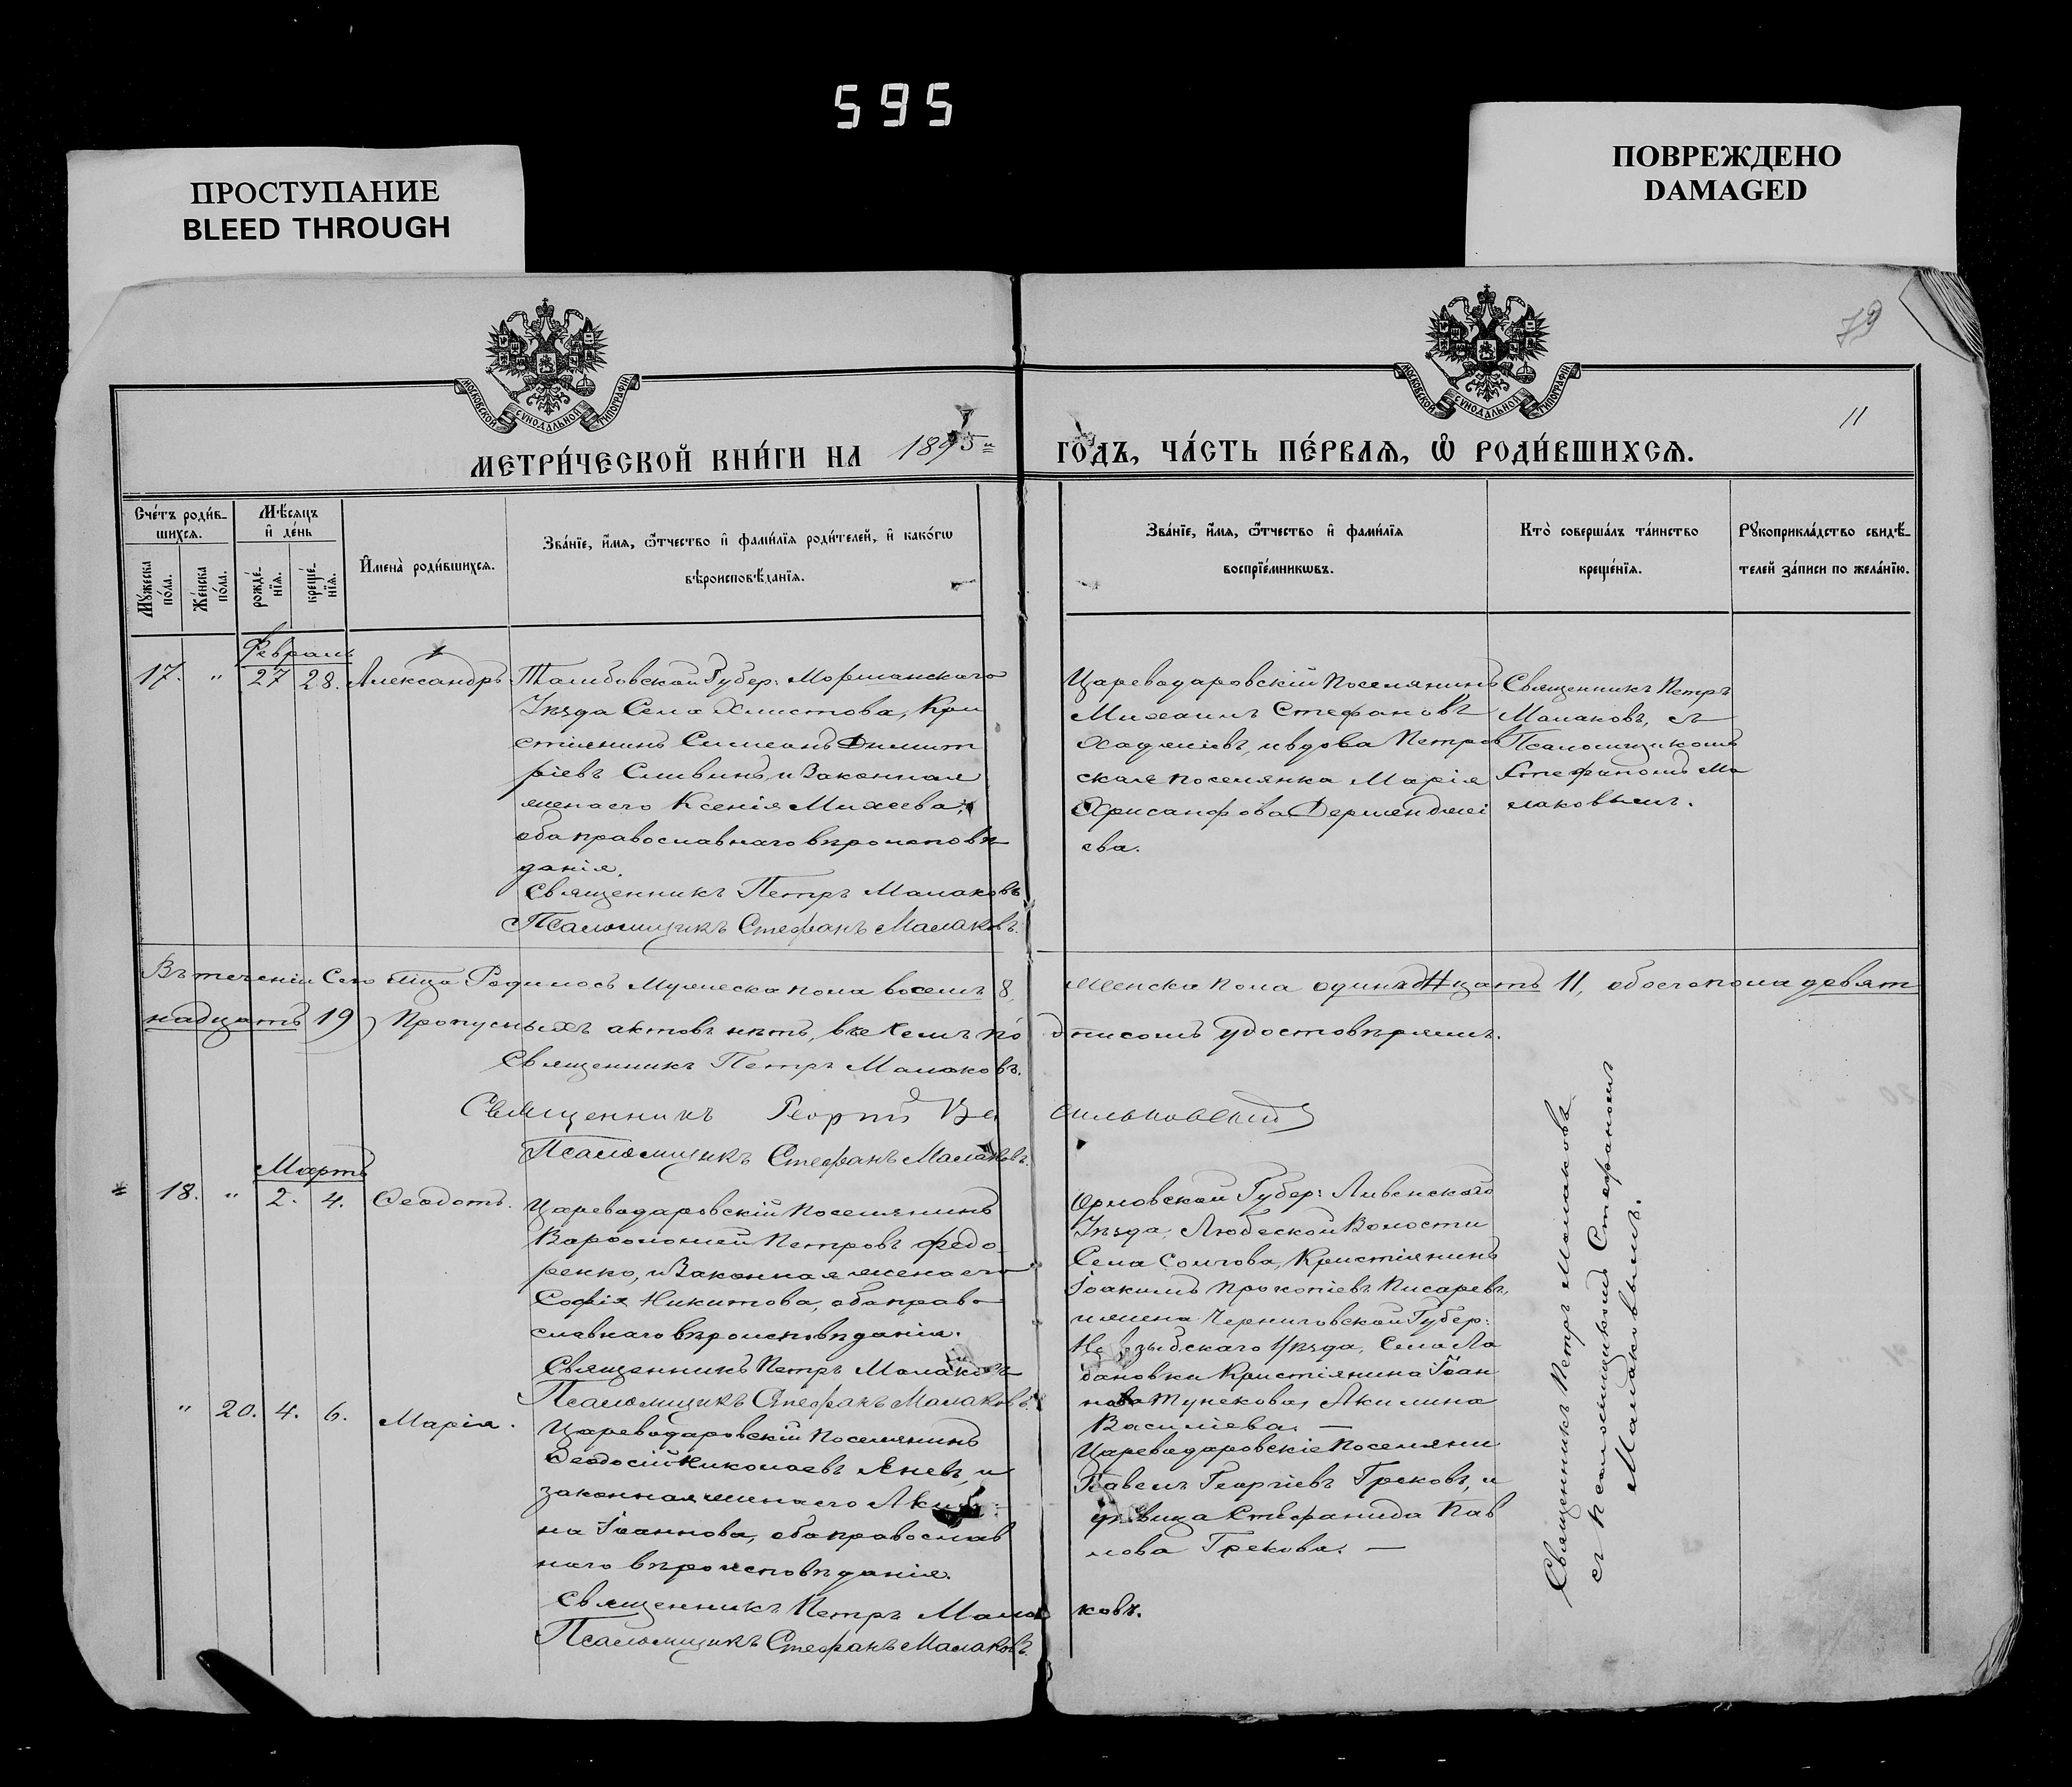 595
ПРОСТУПАНИЕ
BLEED THROUGH
ПОВРЕЖДЕНО
DAMAGED
79
11
МОСКОВСКОЙ СѴНОДАЛЬНОЙ ТИПОГРАФІИ
МОСКОВСКОЙ СѴНОДАЛЬНОЙ ТИПОГРАФІИ
МЕТРИ́ЧЕСКОЙ КНИ́ГИ НА 1895 ГО́ДЪ, ЧА́СТЬ ПЕ́РВАѦ, Ѽ РОДИ́ВШИХСѦ.
Сче́тъ роди́в-
шихсѧ.
Мѣ́сѧцъ
и҆ де́нь
Мꙋ́жеска
по́ла.
Же́нска
по́ла.
рожде́-
нїѧ.
креще́-
нїѧ.
И҆мена̀ роди́вшихсѧ.
Зва́нїе, и҆́мѧ, ѻ҆́тчество и҆ фами́лїѧ роди́телей, и҆ како́гѡ
вѣроисповѣ́данїѧ.
Зва́нїе, и҆́мѧ, ѻ҆́тчество и҆ фами́лїѧ
воспрїе́мникѡвъ.
Кто̀ соверша́лъ та́инство
креще́нїѧ.
Рꙋкоприкла́дство свидѣ́-
телей за́писи по жела́нїю.
Февраль
17. " 27 28. Александръ
Тамбовской Губер: Моршанскаго
Уѣзда Села Хлистова, Кри
стіянинъ Симеонъ Димит
ріевъ Сливинъ, и Законная
жена его Ксенія Михеева,
оба православнаго вѣроисповѣ
данія.
Священникъ Петръ Малаковъ
Псаломщикъ Стефанъ Малаковъ.
Цареводаровскій Поселянинъ
Михаилъ Стефановъ
Хаджіевъ, и вдова Петров
ская поселянка Марія
Хрисанфова Дерменджі
ева.
Священникъ Петръ
Малаковъ, съ
Псаломщикомъ
Стефаномъ Ма
лаковымъ.
Въ теченіи Сего мѣца Родилось Мужеска пола восемь 8, женска пола одиннадцать 11, обоего пола девят
надцать 19) Пропускныхъ актовъ нѣтъ, въ чемъ по дписомъ удостовѣряемъ.
Священникъ Петръ Малаковъ.
Священникъ Георгій Ва сильковскій
Псаломщикъ Стефанъ Малаковъ.
Мартъ
18. " 2. 4. Ѳеодотъ.
Цареводаровскій Поселянинъ
Варѳоломей Петровъ Федо
ренко, и Законная жена его
Софія Никитова, оба право
славнаго вѣроисповѣданія.
Священникъ Петръ Малаковъ
Псаломщикъ Стефанъ Малаковъ.
Орловской Губер: Ливенскаго
Уѣзда, Любеской Волости
Села Сомова, Кристіянинъ
Іоакимъ Прокопіевъ Писаревъ,
и жена Черниговской Губер:
Новозыбскаго Уѣзда, Села Ло
бановки Кристіянина Іоан
нова Акилина
Василіева. —
" 20. 4. 6. Марія.
Цареводаровскій Поселянинъ
Ѳеодосій Николаевъ Яневъ, и
законная жена его Акили
на Іоаннова, оба православ
наго вѣроисповѣданія.
Священникъ Петръ Мала ковъ.
Псаломщикъ Стефанъ Малаковъ.
Цареводаровскіе Поселяни
Павелъ Георгіевъ Грековъ, и
дѣвица Стефанида Пав
лова Грекова. —
Священникъ Петръ Малаковъ
съ Псаломщикомъ Стефаномъ
Малаковымъ.